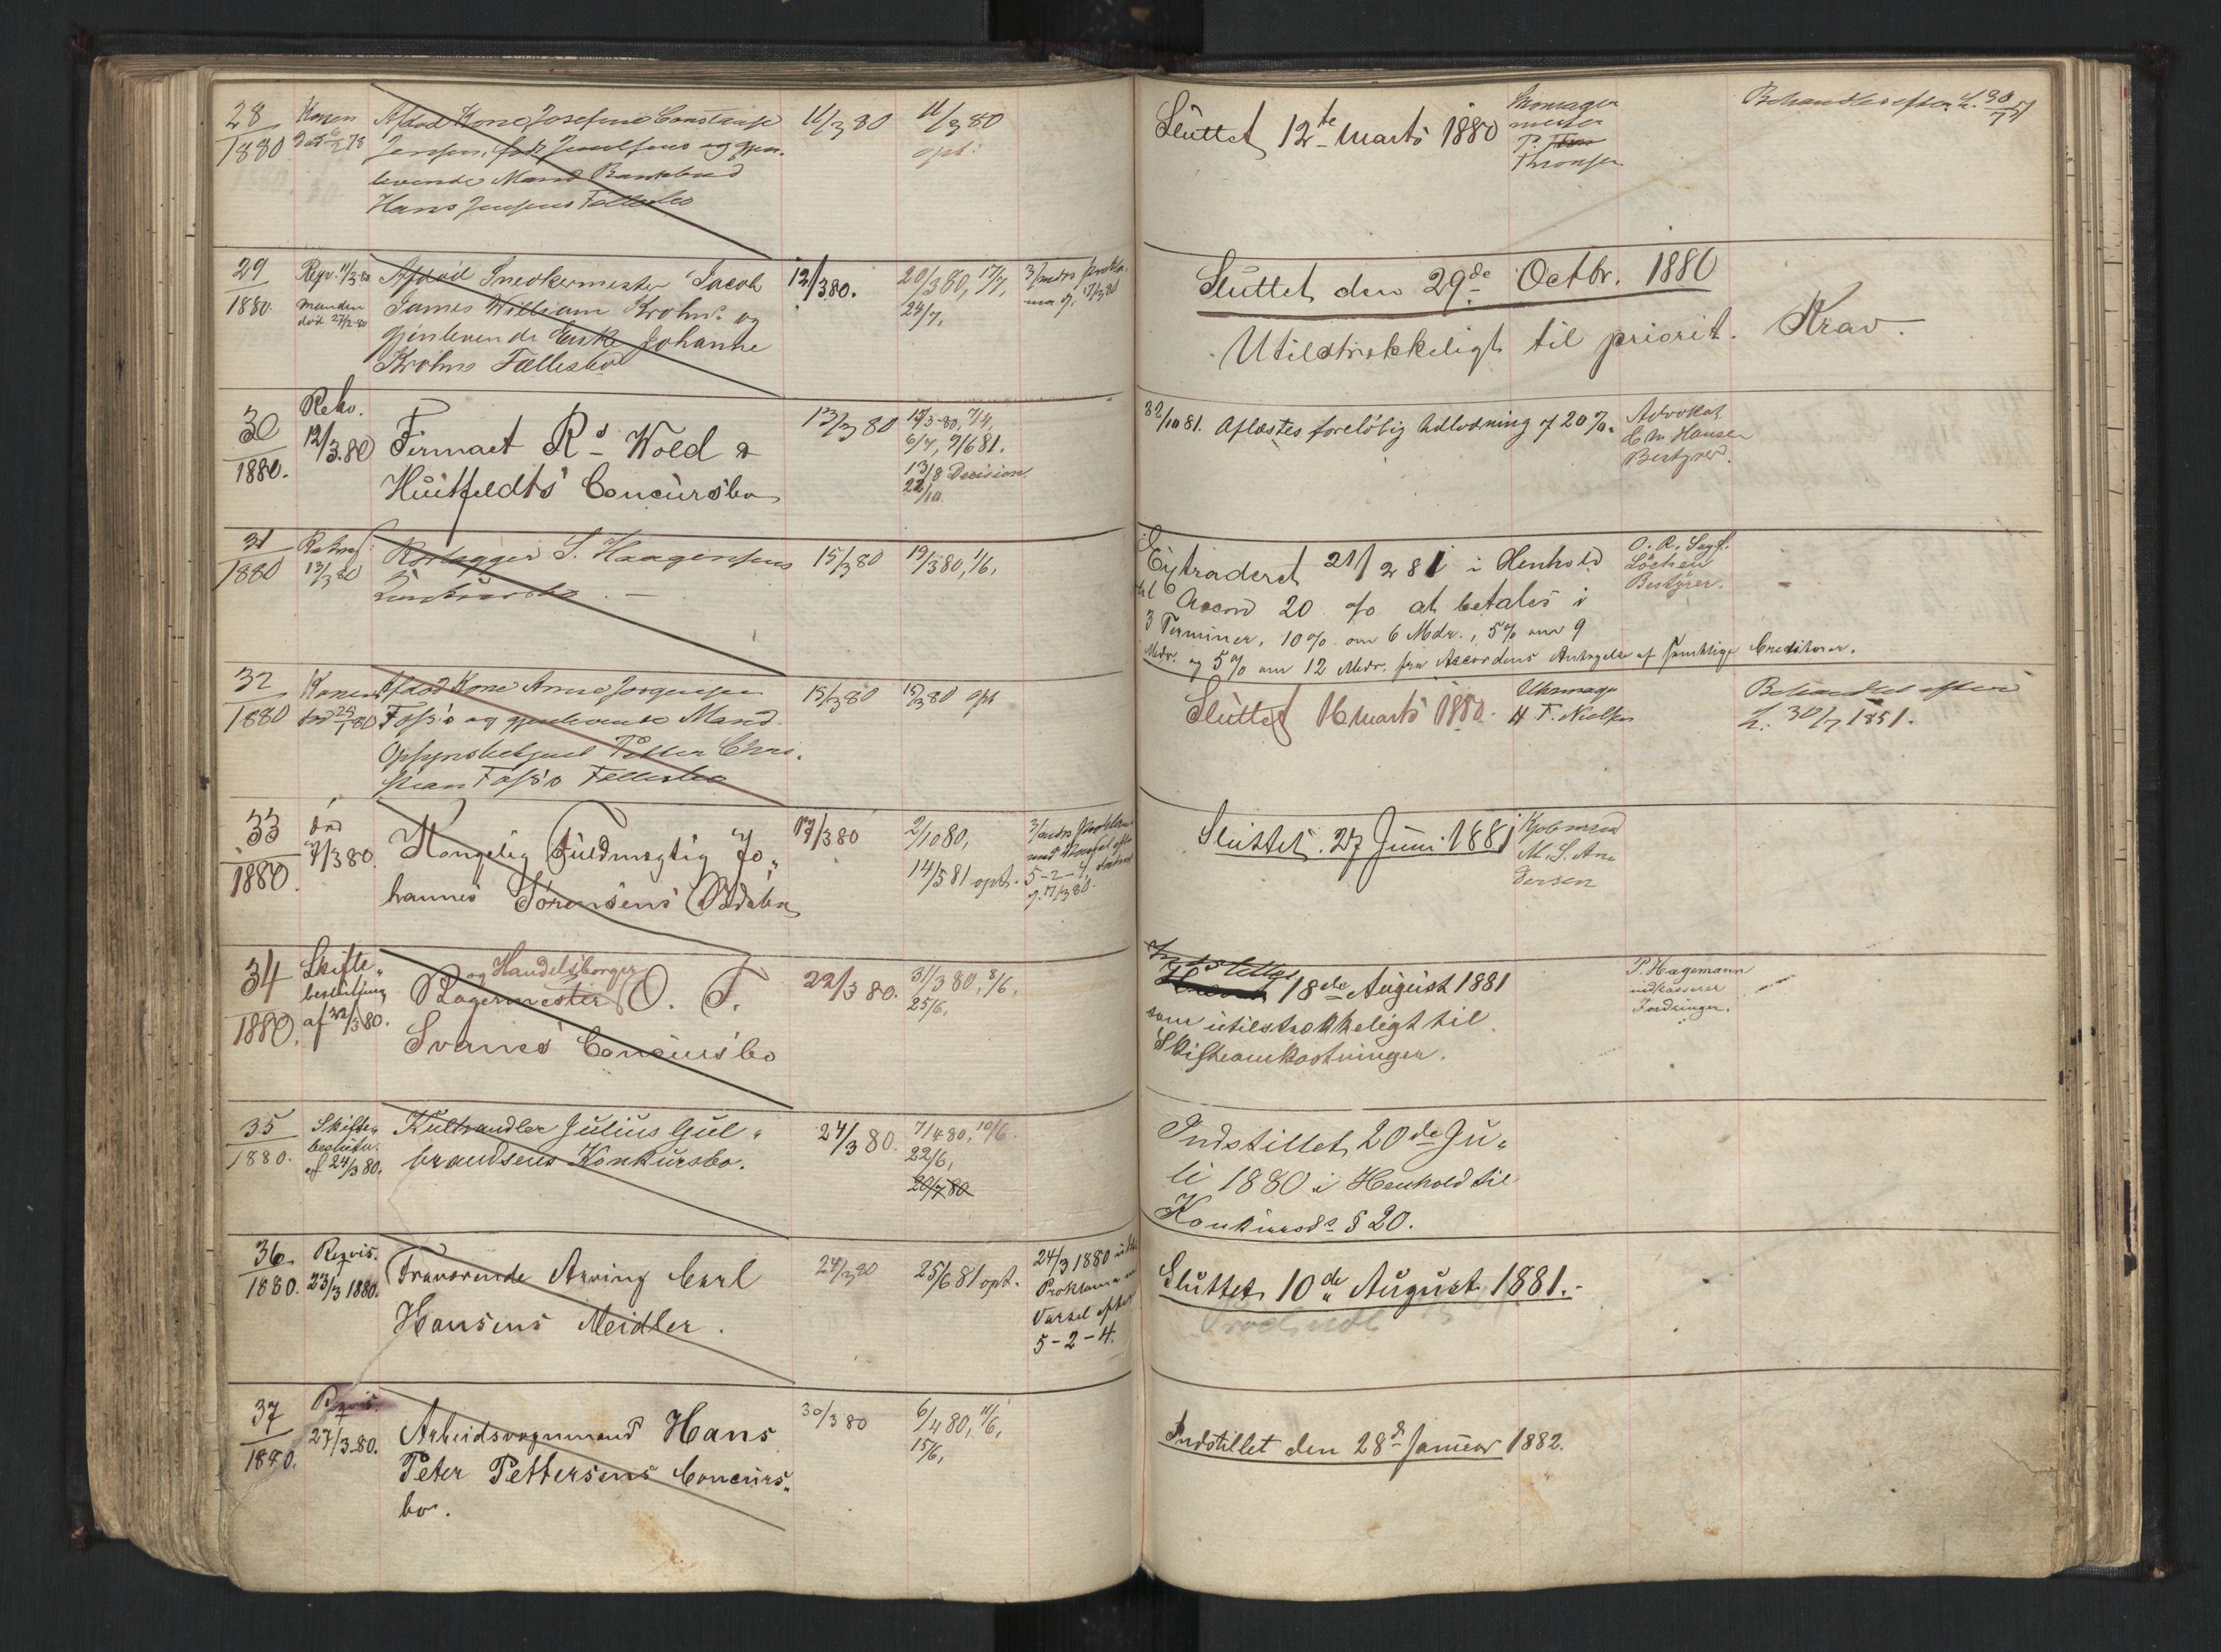 28
1880
Konen
død 6/2 78
Afdød Kone Josefine Constanse
Jensen, født og gjen-
levende Mand Bankbud
Hans Jensens Fællesbo
11/3 80
11/3 80
opt.
Sluttet 12te Marts 1880
Skomager
mester
P.
Thronsen
Behandles efter L. 30/7 51
29
1880.
Reqv. 11/3-80
Manden
död 27/2-80
Afdöd Snedkermester Jacob
James William Krohns og
gjenlevende Enke Johanne
Krohns Fællesbo
12/3 80.
20/3 80, 17/7,
24/7,
3 Mdrs prokla-
ma
17/3 80
Sluttet den 29de Octbr. 1880
Utilstrekkeligt til priorit. Krav.
30
1880.
Rekv.
12/3.80
Firmaet Rd Wold &
Huitfeldts Concursbo
13/3 80
17/3-80, 7/4,
6/7, 9/6 81.
13/8 Decision
22/10
22/10 81. Aflæstes foreløbig Udlodning af 20 %.
Advokat
C M Hansen
Bestyrer.
31
1880
13/3 80
S. Haagensens
15/3 80
19/3 80, 1/6,
Extraderet 21/2 81 i Henhold
til Accord 20 % at betales i
3 Terminer, 10 % om 6 Mdr., 5 % om 9
Mdr. og 5 % om 12 Mdr. fra Accordens Antagelse af samtlige Creditorer.
O. R. Sagf.
Löchen
Bestyrer.
32
1880
Konen
död 23/1 80
Afdød Kone Anne Jørgensen
Foss's og gjenlevende Mand
Opsynsbetjent Petter Chri-
stian Foss's Fællesbo
15/3 80
15/3 80 opt
Sluttet 16 Marts 1880.
Uhrmager
H. F. Nielsen
Behandlet efter
L. 30/7 1851.
33
1880.
död
7/3 80.
Kongelig Fuldmægtig Jo-
hannes Sörensens Dödsbo
17/3 80
2/10 80,
14/5 81 opt.
3 Mdrs Proklama
med Varsel efter
5-2-4,
17/3 80.
Sluttet 27 Juni 1881
Kjøbmand
M. S. An-
dersen
34
1880.
Skifte-
beslutning
af 22/3 80.
og Handelsborger
Bagermester O. T.
Svanes Concursbo
22/3 80.
31/3 80, 8/6,
25/6,
Indstillet
18de August 1881
som utilstrækkeligt til
Skifteomkostninger.
P. Hagemann
indkasserer
Fordringer.
35
1880.
Skifte-
beslutn.
af 24/3 80.
Kulhandler Julius Gul-
brandsens Konkursbo.
24/3 80.
7/4 80, 10/6.
22/6,
20/7 80
Indstillet 20de Ju-
li 1880 i Henhold til
Konkursds § 20.
36
1880.
Reqvis.
23/3 1880.
Fraværende Arving Carl
Hansens Meidler.
24/3 80
25/6 81 opt.
24/3 1880
Proklama
Varsel efter
5-2-4.
Sluttet 10de August 1881.-
37
1880.
Reqvis.
27/3-80.
Arbeidsvognmand Hans
Peter Pettersens Concurs-
bo.
30/3 80
6/4 80, 11/6,
15/6,
Indstillet den 28de Januar 1882.